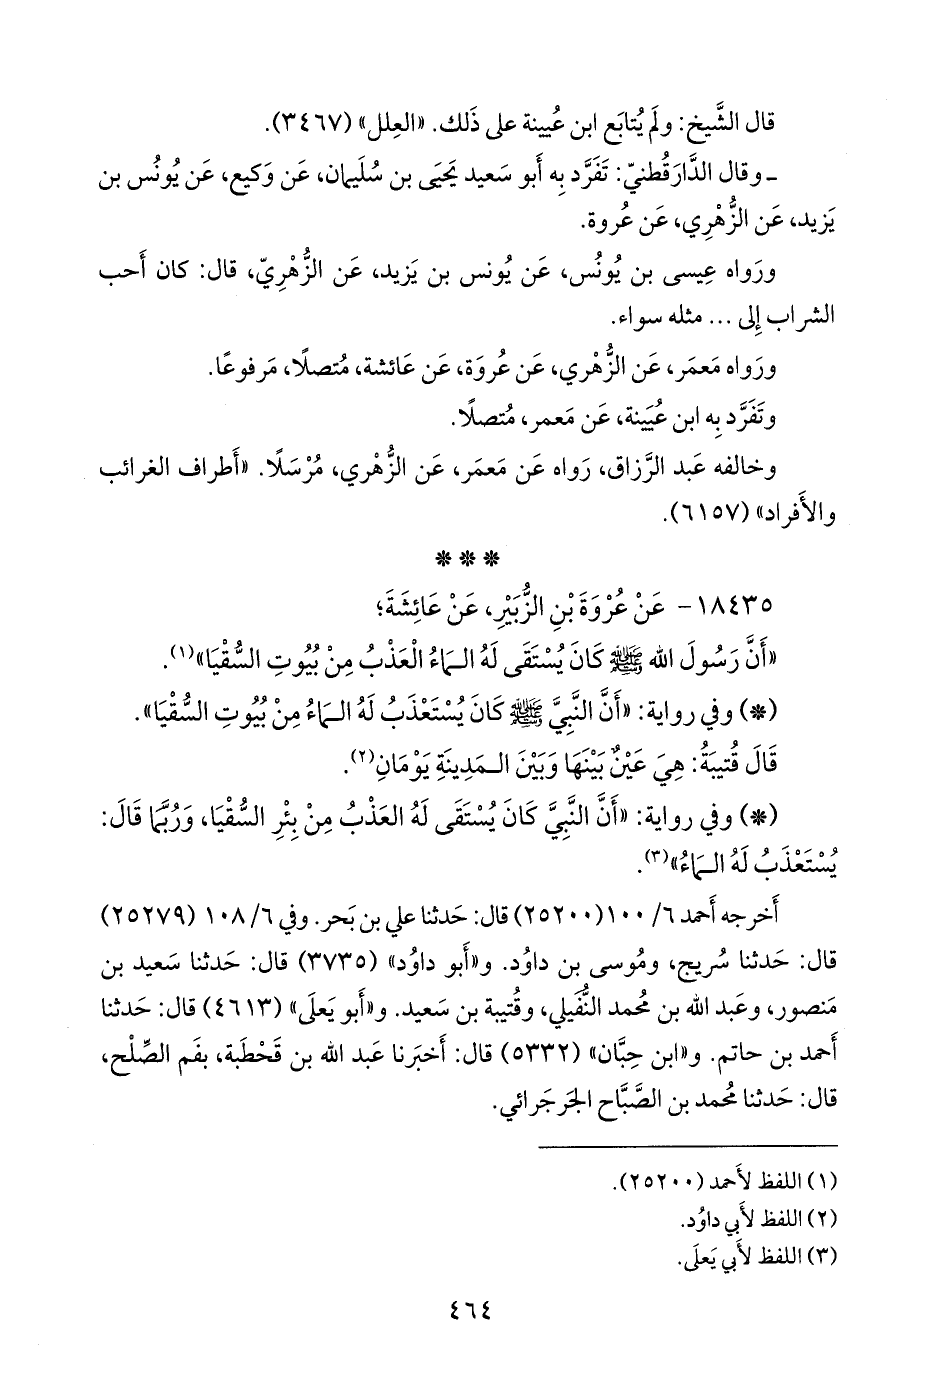 قال الشَّيخ: ولَم يُتابَع ابن عُيينة على ذَلك. «العِلل» (٣٤٦٧).
ـ وقال الدَّارَقُطنيّ: تَفَرَّد بِه أَبو سَعيد يَحيَى بن سُلَيمان، عَن وَكيع، عَن يُونُس بن
يَزيد، عَن الزُّهْري، عَن عُروة.
ورَواه عِيسى بن يُونُس، عَن يُونس بن يَزيد، عَن الزُّهْريّ، قال: كان أَحب
الشراب إِلى ... مثله سواء.
ورَواه مَعمَر، عَن الزُّهْري، عَن عُروَة، عَن عَائشة، مُتصلًا، مَرفوعًا.
وتَفَرَّد بِه ابن عُيَينة، عَن مَعمر، مُتصلًا.
وخالفه عَبد الرَّزاق، رَواه عَن مَعمَر، عَن الزُّهْري، مُرْسَلًا. «أَطراف الغرائب
والأَفراد» (٦١٥٧).
* * *
١٨٤٣٥- عَنْ عُرْوَةَ بْنِ الزُّبَيْرِ، عَنْ عَائِشَةَ؛
«أَنَّ رَسُولَ الله ﷺ كَانَ يُسْتَقَى لَهُ الـمَاءُ الْعَذْبُ مِنْ بُيُوتِ السُّقْيَا»(١).
(*) وفي رواية: «أَنَّ النَّبِيَّ ﷺ كَانَ يُسْتَعْذَبُ لَهُ الـمَاءُ مِنْ بُيُوتِ السُّقْيَا».
قَالَ قُتيبَةُ: هِيَ عَيْنٌ بَيْنَهَا وَبَيْنَ الـمَدِينَةِ يَوْمَانِ(٢).
(*) وفي رواية: «أَنَّ النَّبِيَّ كَانَ يُسْتَقَى لَهُ العَذْبُ مِنْ بِئْرِ السُّقْيَا، وَرُبَّمَا قَالَ:
يُسْتَعْذَبُ لَهُ الـمَاءُ»(٣).
أَخرجه أَحمد ٦/ ١٠٠(٢٥٢٠٠) قال: حَدثنا علي بن بَحر. وفي ٦/ ١٠٨ (٢٥٢٧٩)
قال: حَدثنا سُريج، ومُوسى بن داوُد. و«أَبو داوُد» (٣٧٣٥) قال: حَدثنا سَعيد بن
مَنصور، وعَبد الله بن مُحمد النُّفَيلي، وقُتيبة بن سَعيد. و«أَبو يَعلَى» (٤٦١٣) قال: حَدثنا
أَحمد بن حاتم. و«ابن حِبَّان» (٥٣٣٢) قال: أَخبَرنا عَبد الله بن قَحْطَبة، بفَم الصِّلْح،
قال: حَدثنا مُحمد بن الصَّبَّاح الجَرجَرائي.
(١) اللفظ لأَحمد (٢٥٢٠٠).
(٢) اللفظ لأَبي داوُد.
(٣) اللفظ لأَبي يَعلَى.
٤٦٤